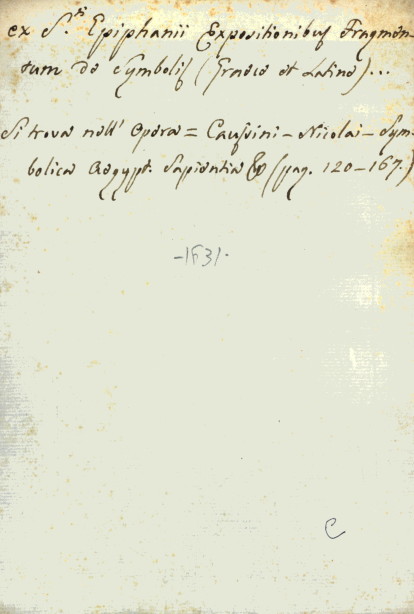 ex S.ti Epiphanii Expositionibus Fragmen-
tum de Symbolis (Graece et Latine)...
Si trova nell' Opera = Caussini - Nicolai - Sym-
bolica Aegypt. Sapientia & (pag. 120-167.)
-1631-
C